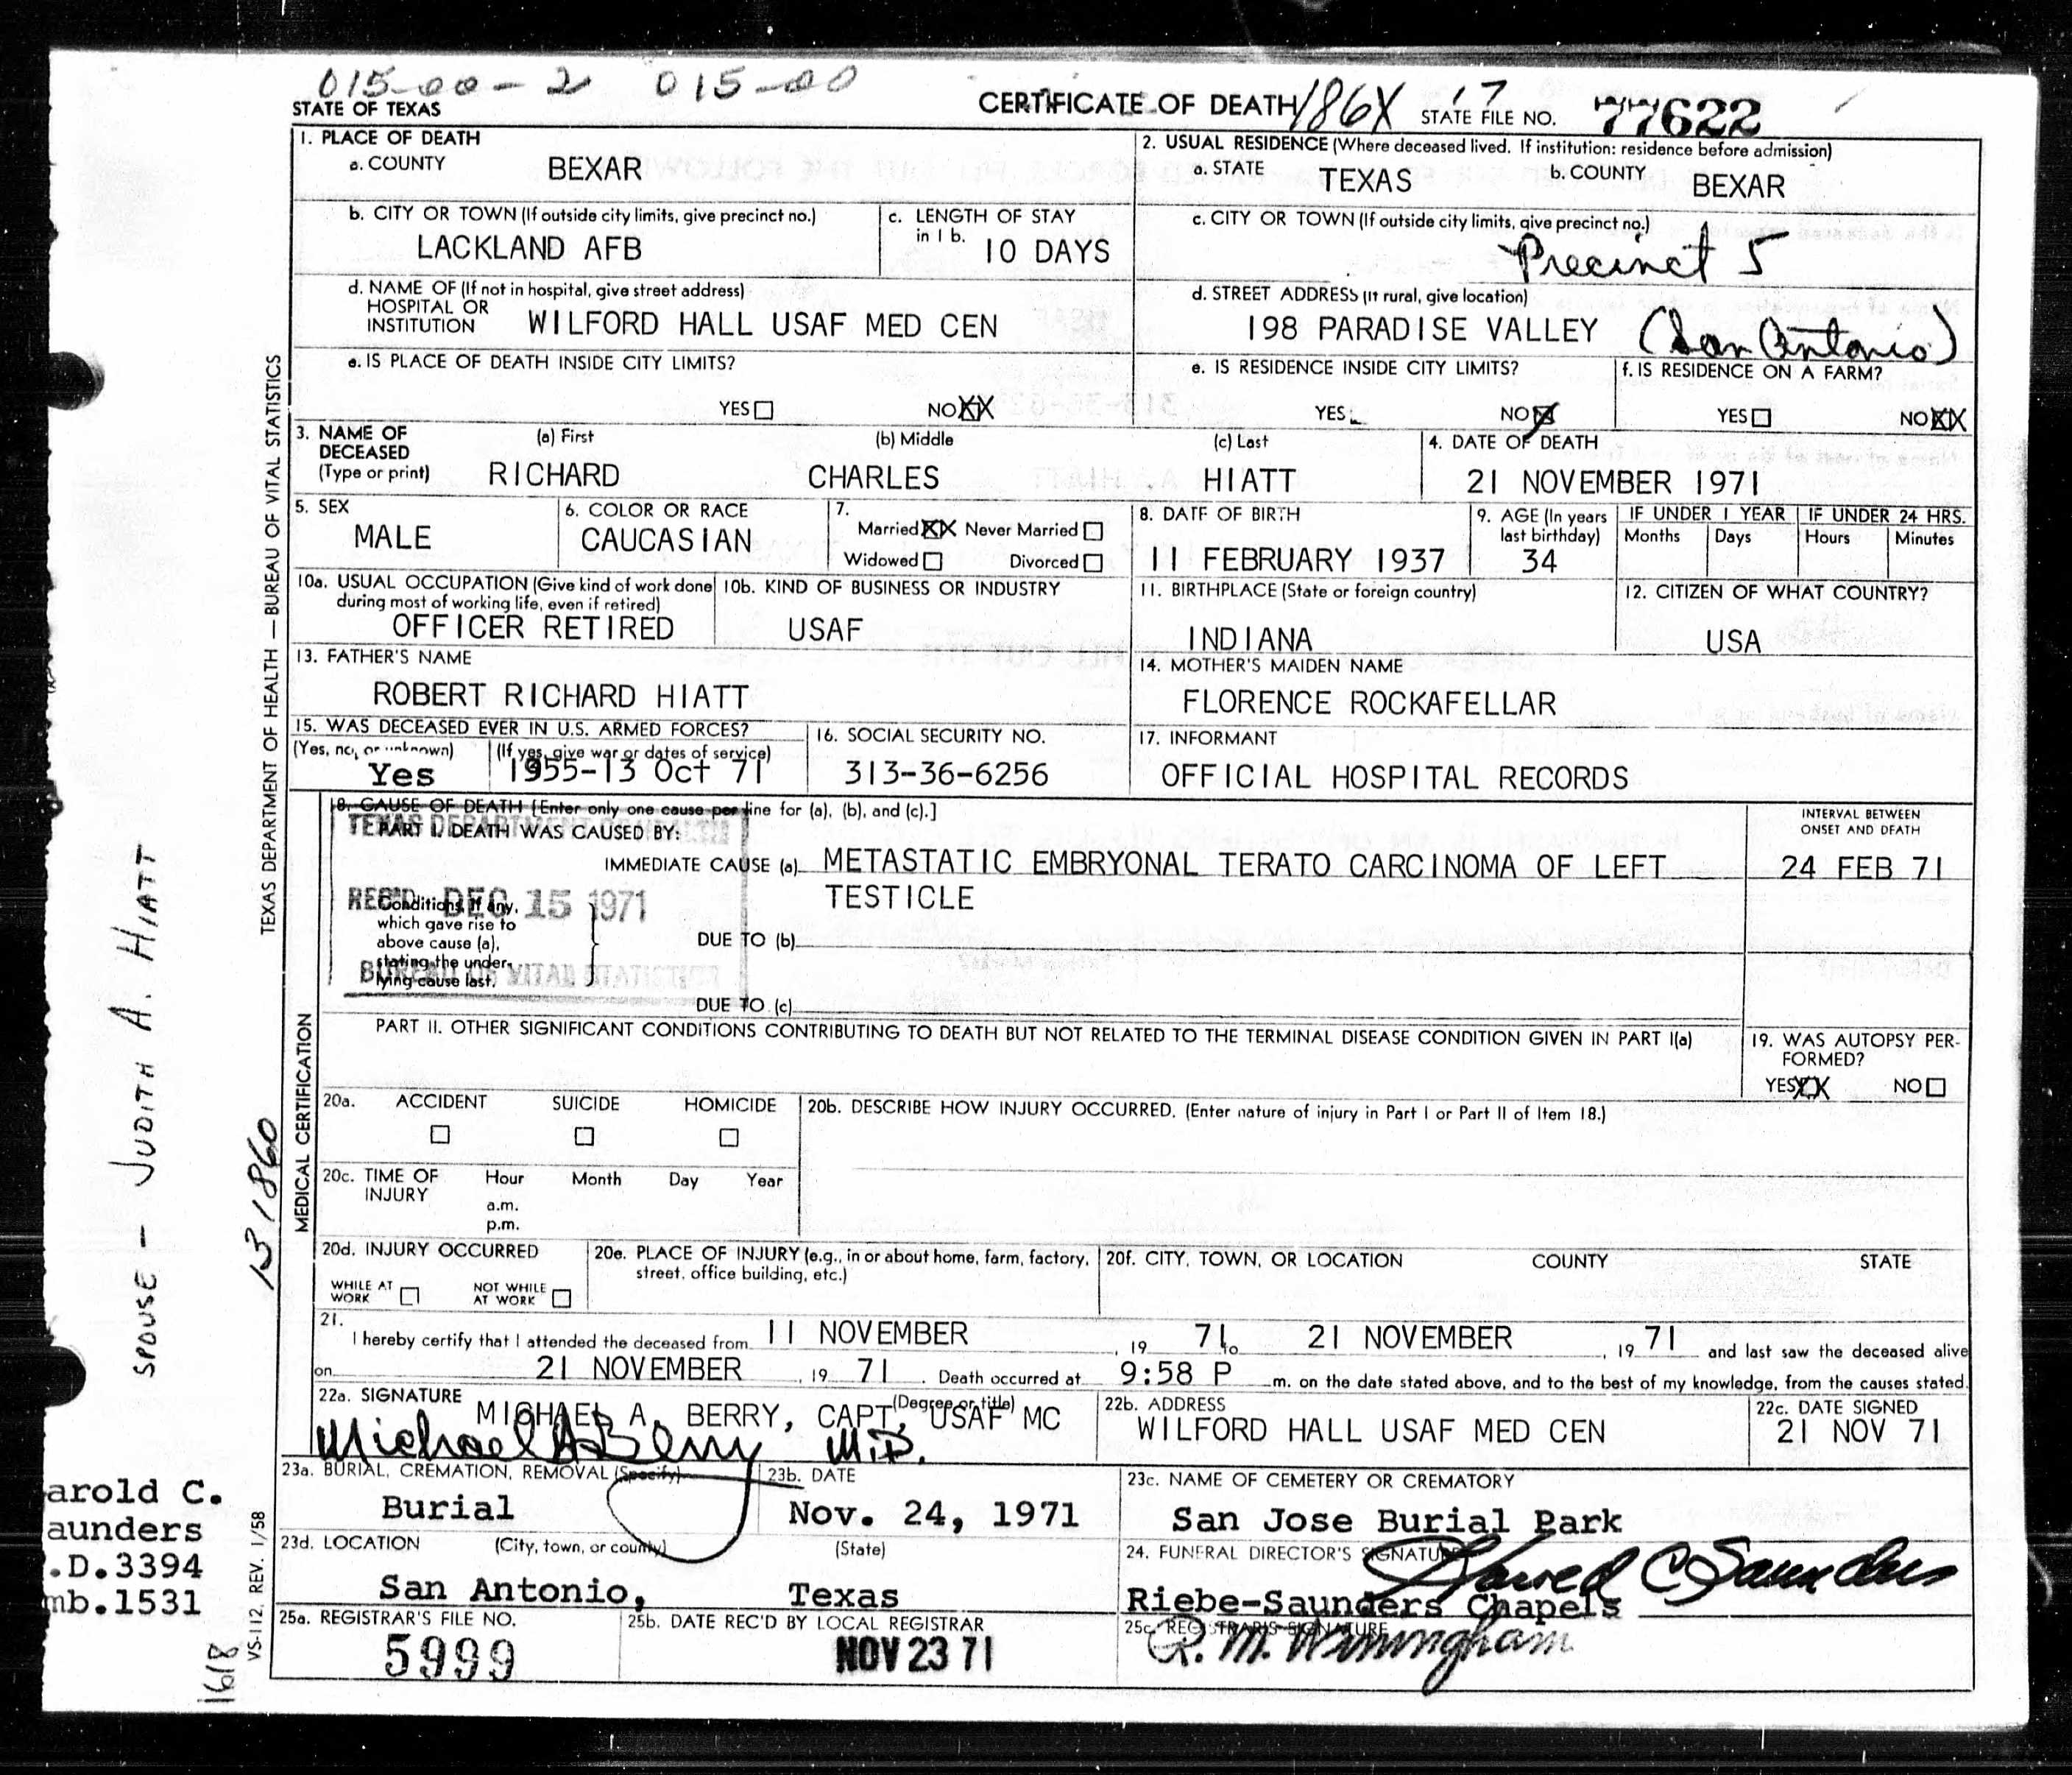 015-00-2 015-00
STATE OF TEXAS
CERTIFICATE OF DEATH 186X 17 STATE FILE NO. 77622
1. PLACE OF DEATH
a. COUNTY BEXAR
2. USUAL RESIDENCE (Where deceased lived. If institution: residence before admission)
a. STATE TEXAS b. COUNTY BEXAR
b. CITY OR TOWN (If outside city limits, give precinct no.)
LACKLAND AFB
c. LENGTH OF STAY in 1 b. 10 DAYS
c. CITY OR TOWN (If outside city limits, give precinct no.)
Precinct 5
d. NAME OF (If not in hospital, give street address)
HOSPITAL OR
INSTITUTION WILFORD HALL USAF MED CEN
d. STREET ADDRESS (If rural, give location)
198 PARADISE VALLEY (San Antonio)
e. IS PLACE OF DEATH INSIDE CITY LIMITS?
YES NO XX
e. IS RESIDENCE INSIDE CITY LIMITS?
YES NO X
f. IS RESIDENCE ON A FARM?
YES NO XX
3. NAME OF DECEASED (Type or print)
(a) First (b) Middle (c) Last
RICHARD CHARLES HIATT
4. DATE OF DEATH
21 NOVEMBER 1971
5. SEX
MALE
6. COLOR OR RACE
CAUCASIAN
7.
Married XX Never Married
Widowed Divorced
8. DATE OF BIRTH
11 FEBRUARY 1937
9. AGE (In years last birthday)
34
IF UNDER 1 YEAR
Months Days
IF UNDER 24 HRS.
Hours Minutes
10a. USUAL OCCUPATION (Give kind of work done
during most of working life, even if retired)
OFFICER RETIRED
10b. KIND OF BUSINESS OR INDUSTRY
USAF
11. BIRTHPLACE (State or foreign country)
INDIANA
12. CITIZEN OF WHAT COUNTRY?
USA
13. FATHER'S NAME
ROBERT RICHARD HIATT
14. MOTHER'S MAIDEN NAME
FLORENCE ROCKAFELLAR
15. WAS DECEASED EVER IN U.S. ARMED FORCES?
(Yes, no, or unknown) (If yes, give war or dates of service)
Yes 1955-13 Oct 71
16. SOCIAL SECURITY NO.
313-36-6256
17. INFORMANT
OFFICIAL HOSPITAL RECORDS
18. CAUSE OF DEATH [Enter only one cause per line for (a), (b), and (c).]
PART I. DEATH WAS CAUSED BY:
INTERVAL BETWEEN
ONSET AND DEATH
IMMEDIATE CAUSE (a) METASTATIC EMBRYONAL TERATO CARCINOMA OF LEFT
TESTICLE
24 FEB 71
Conditions, if any,
which gave rise to
above cause (a),
stating the under-
lying cause last.
DUE TO (b)
DUE TO (c)
TEXAS DEPARTMENT OF HEALTH
REC'D DEC 15 1971
BUREAU OF VITAL STATISTICS
PART II. OTHER SIGNIFICANT CONDITIONS CONTRIBUTING TO DEATH BUT NOT RELATED TO THE TERMINAL DISEASE CONDITION GIVEN IN PART I(a)
19. WAS AUTOPSY PER-
FORMED?
YES XX NO
20a. ACCIDENT SUICIDE HOMICIDE
20b. DESCRIBE HOW INJURY OCCURRED. (Enter nature of injury in Part I or Part II of Item 18.)
20c. TIME OF INJURY
Hour Month Day Year
a.m.
p.m.
20d. INJURY OCCURRED
WHILE AT WORK NOT WHILE AT WORK
20e. PLACE OF INJURY (e.g., in or about home, farm, factory,
street, office building, etc.)
20f. CITY, TOWN, OR LOCATION COUNTY STATE
21.
I hereby certify that I attended the deceased from 11 NOVEMBER, 19 71 to 21 NOVEMBER, 19 71 and last saw the deceased alive
on 21 NOVEMBER, 19 71. Death occurred at 9:58 P m. on the date stated above, and to the best of my knowledge, from the causes stated.
22a. SIGNATURE (Degree or title)
MICHAEL A. BERRY, CAPT, USAF MC
Michael A Berry M.D.
22b. ADDRESS
WILFORD HALL USAF MED CEN
22c. DATE SIGNED
21 NOV 71
23a. BURIAL, CREMATION, REMOVAL (Specify)
Burial
23b. DATE
Nov. 24, 1971
23c. NAME OF CEMETERY OR CREMATORY
San Jose Burial Park
23d. LOCATION (City, town, or county) (State)
San Antonio, Texas
24. FUNERAL DIRECTOR'S SIGNATURE
Harold C Saunders
Riebe-Saunders Chapels
25a. REGISTRAR'S FILE NO.
5999
25b. DATE REC'D BY LOCAL REGISTRAR
NOV 23 71
25c. REGISTRAR'S SIGNATURE
TEXAS DEPARTMENT OF HEALTH — BUREAU OF VITAL STATISTICS
MEDICAL CERTIFICATION
SPOUSE - JUDITH A. HIATT
131860
arold C.
aunders
.D.3394
mb.1531
VS-112, REV. 1/58
1618